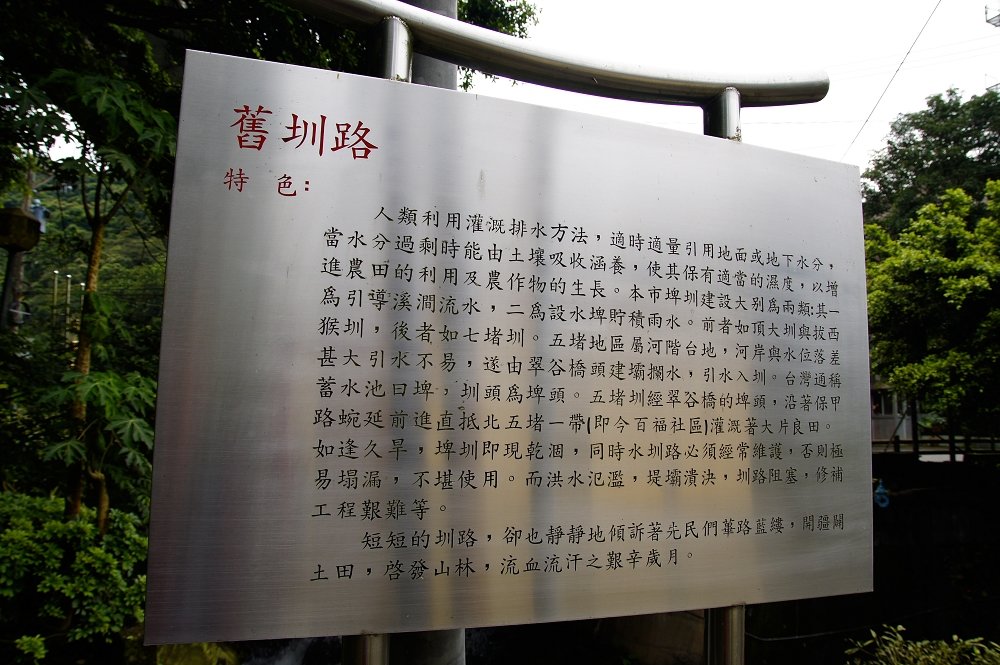 舊圳路
特 色:
人類利用灌溉排水方法，適時適量引用地面或地下水分，
當水分過剩時能由土壤吸收涵養，使其保有適當的濕度，以增
進農田的利用及農作物的生長。本市埤圳建設大別為兩類:其一
為引導溪澗流水，二為設水埤貯積雨水。前者如頂大圳與拔西
猴圳，後者如七堵圳。五堵地區屬河階台地，河岸與水位落差
甚大引水不易，遂由翠谷橋頭建壩攔水，引水入圳。台灣通稱
蓄水池曰埤，圳頭為埤頭。五堵圳經翠谷橋的埤頭，沿著保甲
路蜿延前進直抵北五堵一帶(即今百福社區)灌溉著大片良田。
如逢久旱，埤圳即現乾涸，同時水圳路必須經常維護，否則極
易塌漏，不堪使用。而洪水氾濫，堤壩潰決，圳路阻塞，修補
工程艱難等。
短短的圳路，卻也靜靜地傾訴著先民們蓽路藍縷，開疆闢
土田，啓發山林，流血流汗之艱辛歲月。